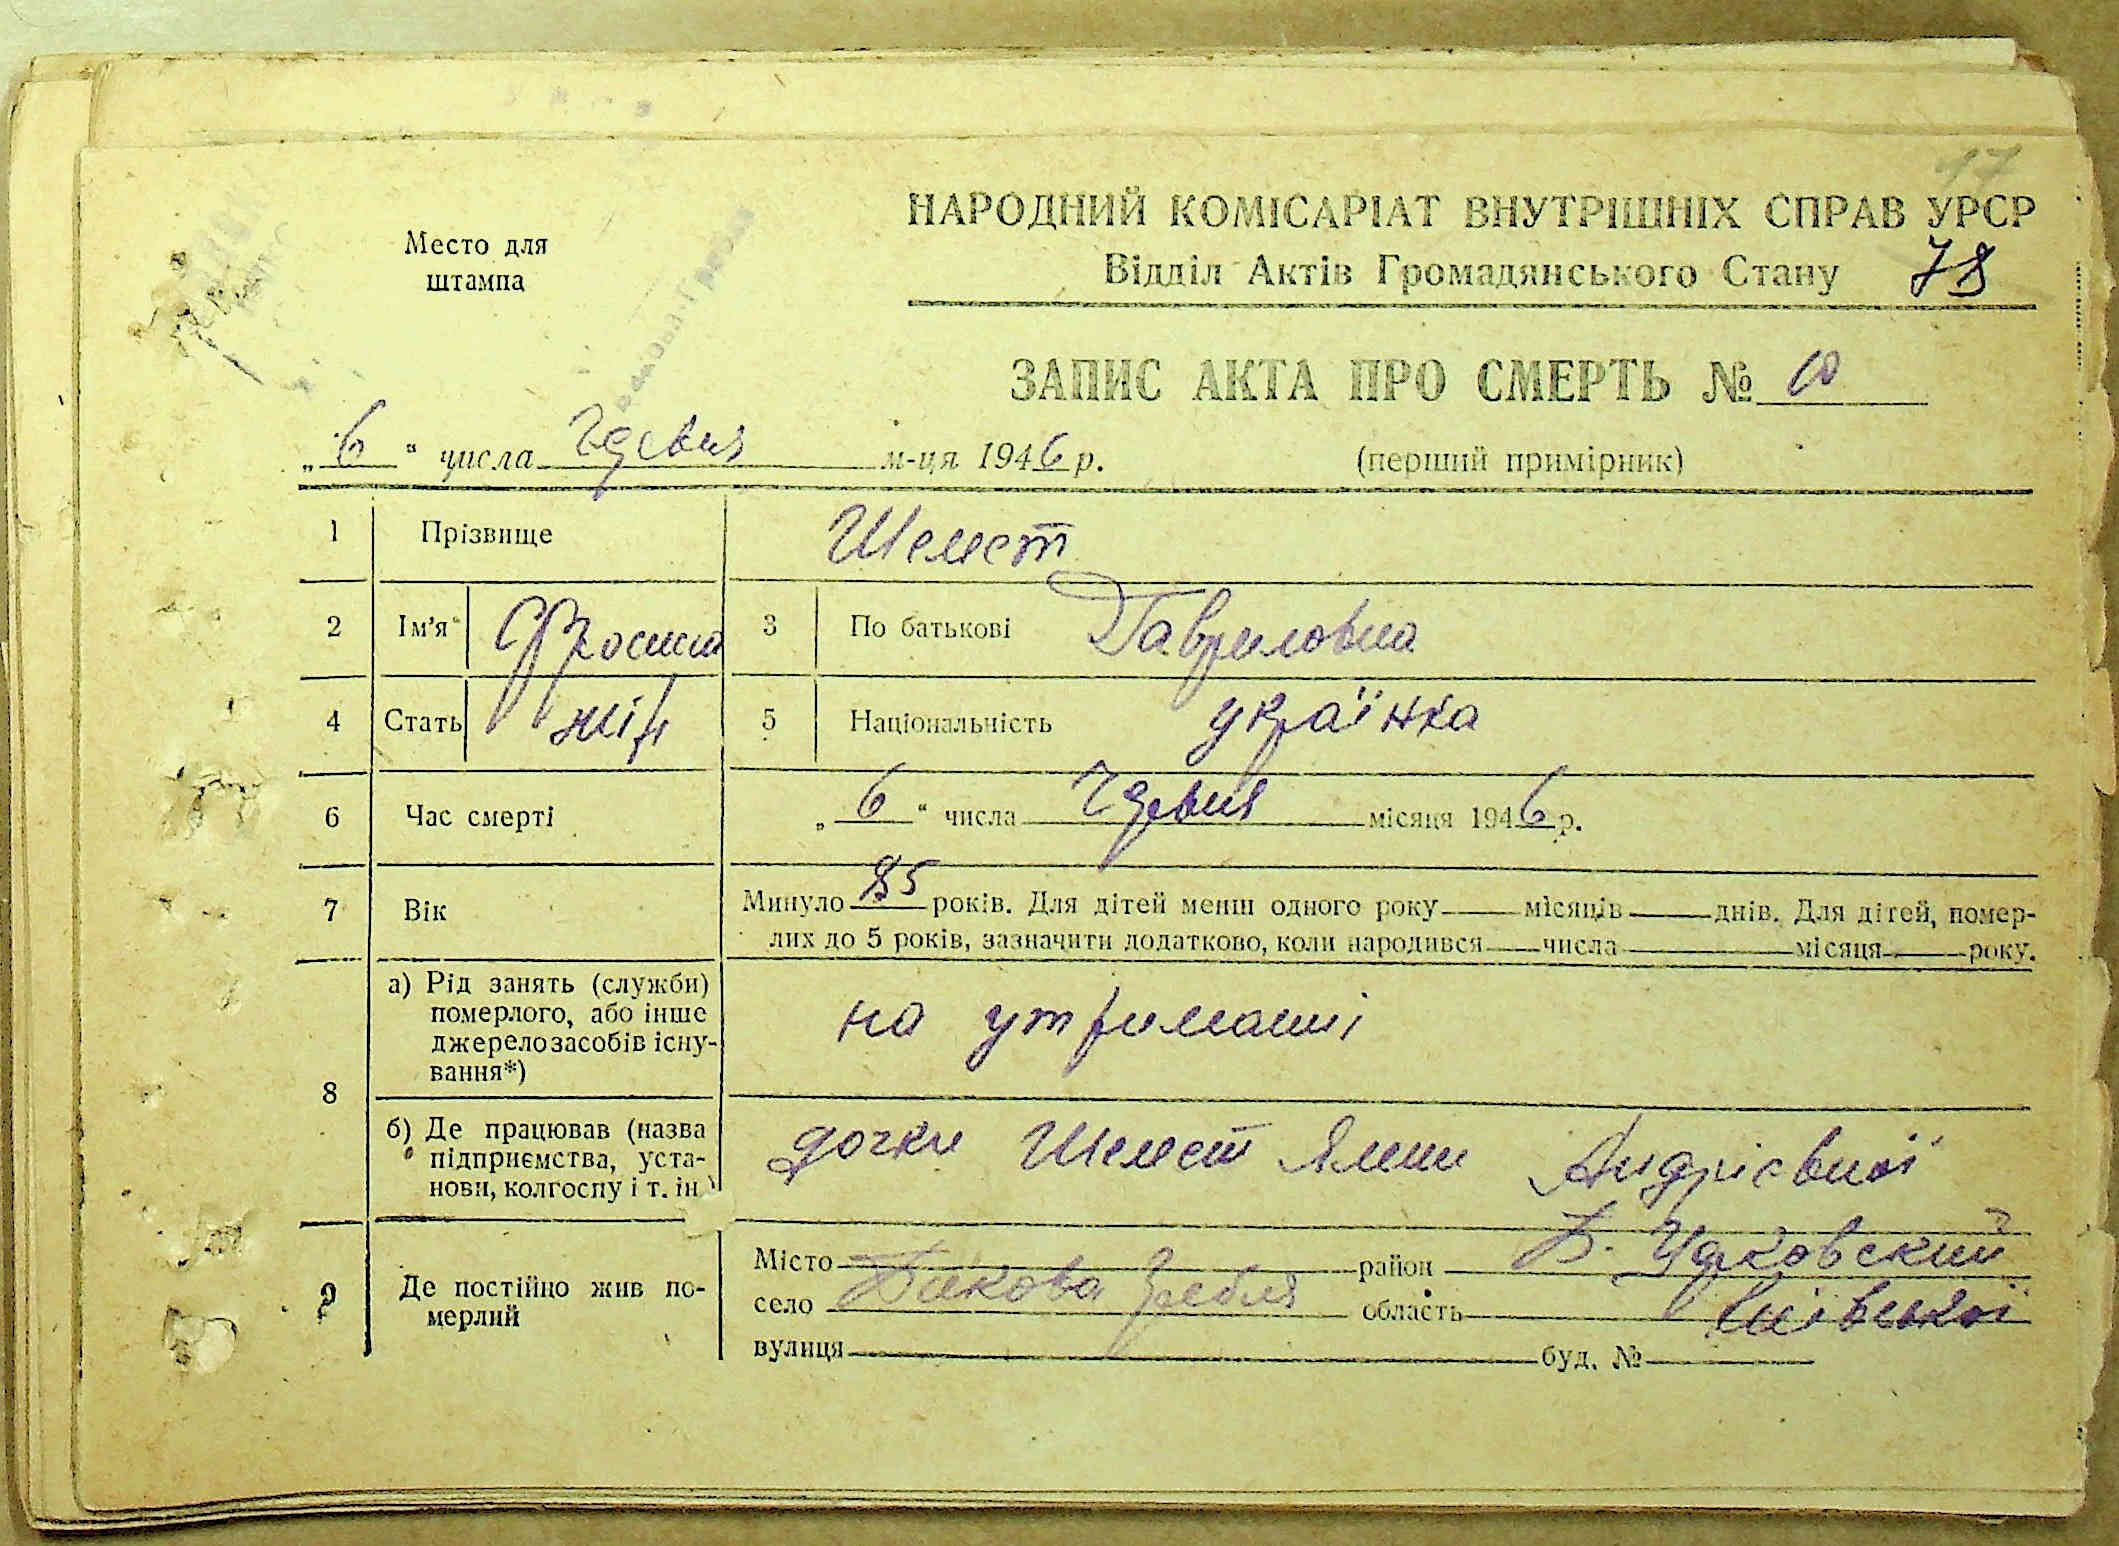 17
НАРОДНИЙ КОМІСАРІАТ ВНУТРІШНІХ СПРАВ УРСР
Место для штампа
Відділ Актів Громадянського Стану 78
ЗАПИС АКТА ПРО СМЕРТЬ №
„6“ числа м-ця 1946 р. (перший примірник)
1 Прізвище Шелест
2 Ім'я Фросина 3 По батькові Гавриловна
4 Стать жін 5 Національність українка
6 Час смерті „6“ числа місяця 1946 р.
7 Вік Минуло 85 років. Для дітей менш одного року місяців днів. Для дітей, помер-
лих до 5 років, зазначити додатково, коли народився числа місяця року.
8 а) Рід занять (служби)
померлого, або інше
джерело засобів існу-
вання*) на утриманні
б) Де працював (назва
підприємства, уста-
нови, колгоспу і т. ін. дочки Шелест Ялини Андрієвної
9 Де постійно жив по-
мерлий
Місто район Б.
село Бикова Гребля область Київської
вулиця буд. №